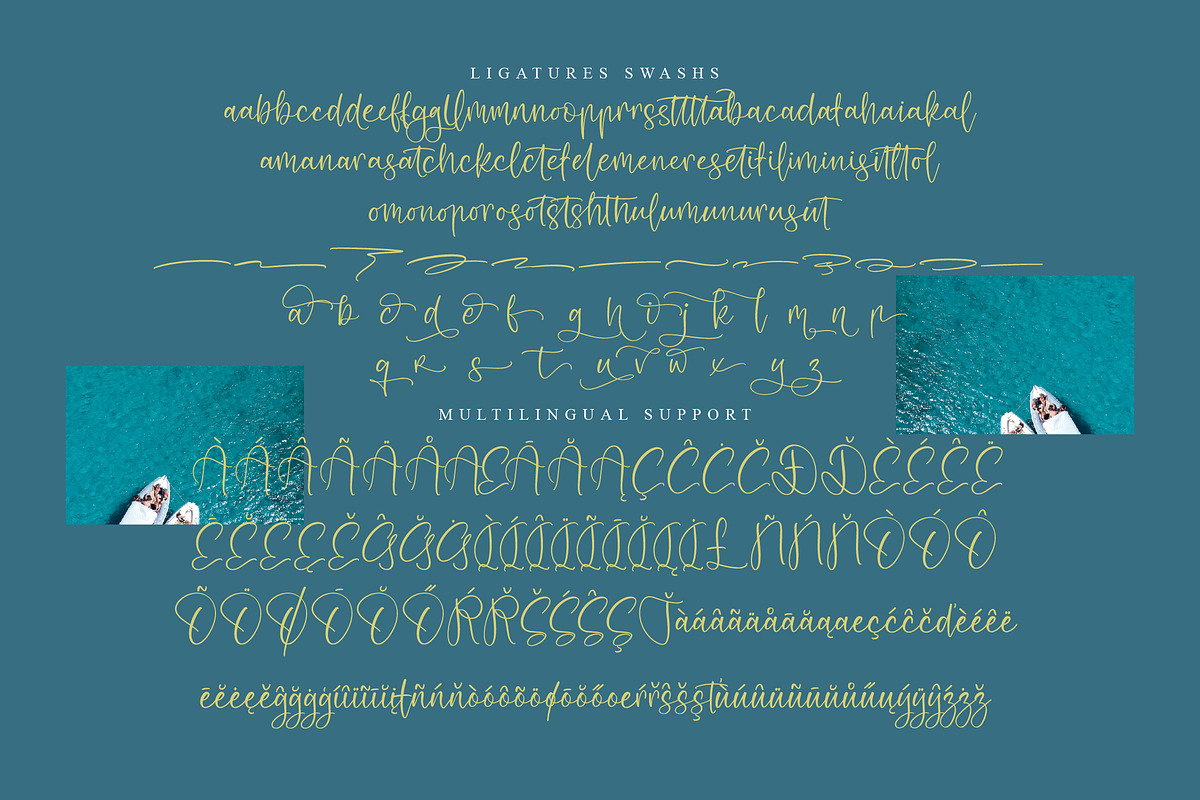 LIGATURES SWASHS
aabbccddeeffggllmmnnooopprrssttttabacadafahaiakal
amanarasatchckclctefelemeneresetifiliminisittltol
omonoporosotstshthulumunurusut
a b c d e f g h i j k l m n p
q r s t u v w x y z
MULTILINGUAL SUPPORT
ÀÁÂÃÄÅÆĀĂĄÇĈĊČĐĎÈÉÊË
ĒĔĖĘĚĜĞĠÌÍÎÏÑĪĬĮİŁÑŃŇÒÓÔ
ÕÖØŌŎŐŔŘŠŚŜŞŤàáâãäåāăąaeçćĉčďèéêë
ēĕėęěĝğġģíîïĩīĭįłñńňòóôõöøōŏőoeŕřŝšşťùúûüũūŭůűųýÿŷźżž